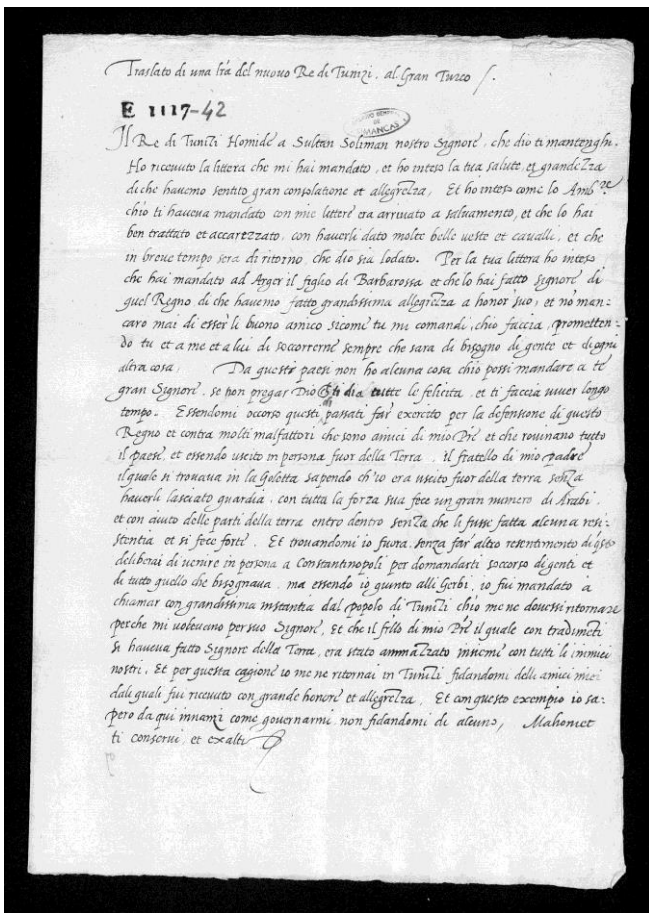 Traslato di una l̃ra del nuovo Re di Tunizi. al Gran Turco
E 1117-42
Il Re di Tunizi Homide a Sultan Soliman nostro Signore, che dio ti mantenghi.
Ho ricevuto la littera che mi hai mandato, et ho inteso la tua salute, et grandezza
di che havemo sentito gran consolatione et allegrezza, Et ho inteso come lo Amb.re
ch'io ti haveva mandato con mie littere era arrivato a salvamento, et che lo hai
ben trattato et accarezzato, con haverli dato molte belle veste et cavalli, et che
in breve tempo sera di ritorno, che dio sia lodato. Per la tua littera ho inteso
che hai mandato ad Arger il figlio di Barbarossa et che lo hai fatto signore di
quel Regno di che havemo fatto grandissima allegrezza a honor suo, et nõ man-
caro mai di esserli buono amico sicome tu mi comandi, ch'io faccia, prometten-
do tu et a me et a lui di soccorrerne sempre che sara di bisogno di gente et di ogni
altra cosa, Da questi paesi non ho alcuna cosa ch'io possi mandare a te
gran Signore, se non pregar Dio ti dia tutte le felicita, et ti faccia viver longo
tempo. Essendomi occorso questi dì passati far exercito per la defensione di questo
Regno et contra molti malfattori che sono amici di mio P̃re et che rovinano tutto
il paese, et essendo uscito in persona fuor della Terra, il fratello di mio padre
il quale si trovava in la Goletta sapendo ch'io era uscito fuor della terra senza
haverli lasciato guardia, con tutta la forza sua fece un gran numero di Arabi,
et con aiuto delle parti della terra entro dentro senza che li fusse fatta alcuna resi-
stentia et si fece forte. Et trovandomi io fuora senza far altro resentimento di q̃sto
deliberai di venire in persona a Constantinopoli per domandarti soccorso di genti et
di tutto quello che bisognava, ma essendo io giunto alli Gerbi, io fui mandato à
chiamar con grandissima instantia dal popolo di Tunizi ch'io me ne dovessi ritornare
perche mi volevano per suo Signore, Et che il fr̃llo di mio P̃re il quale con tradimẽti
si haveva fatto Signore della Terra, era stato ammazzato insieme con tutti li inimici
nostri, Et per questa cagione io me ne ritornai in Tunizi fidandomi delli amici miei
dali quali fui ricevuto con grande honore et allegrezza, Et con questo exempio io sa-
pero da qui innanzi come governarmi non fidandomi di alcuno, Mahomet
ti conservi, et exalti